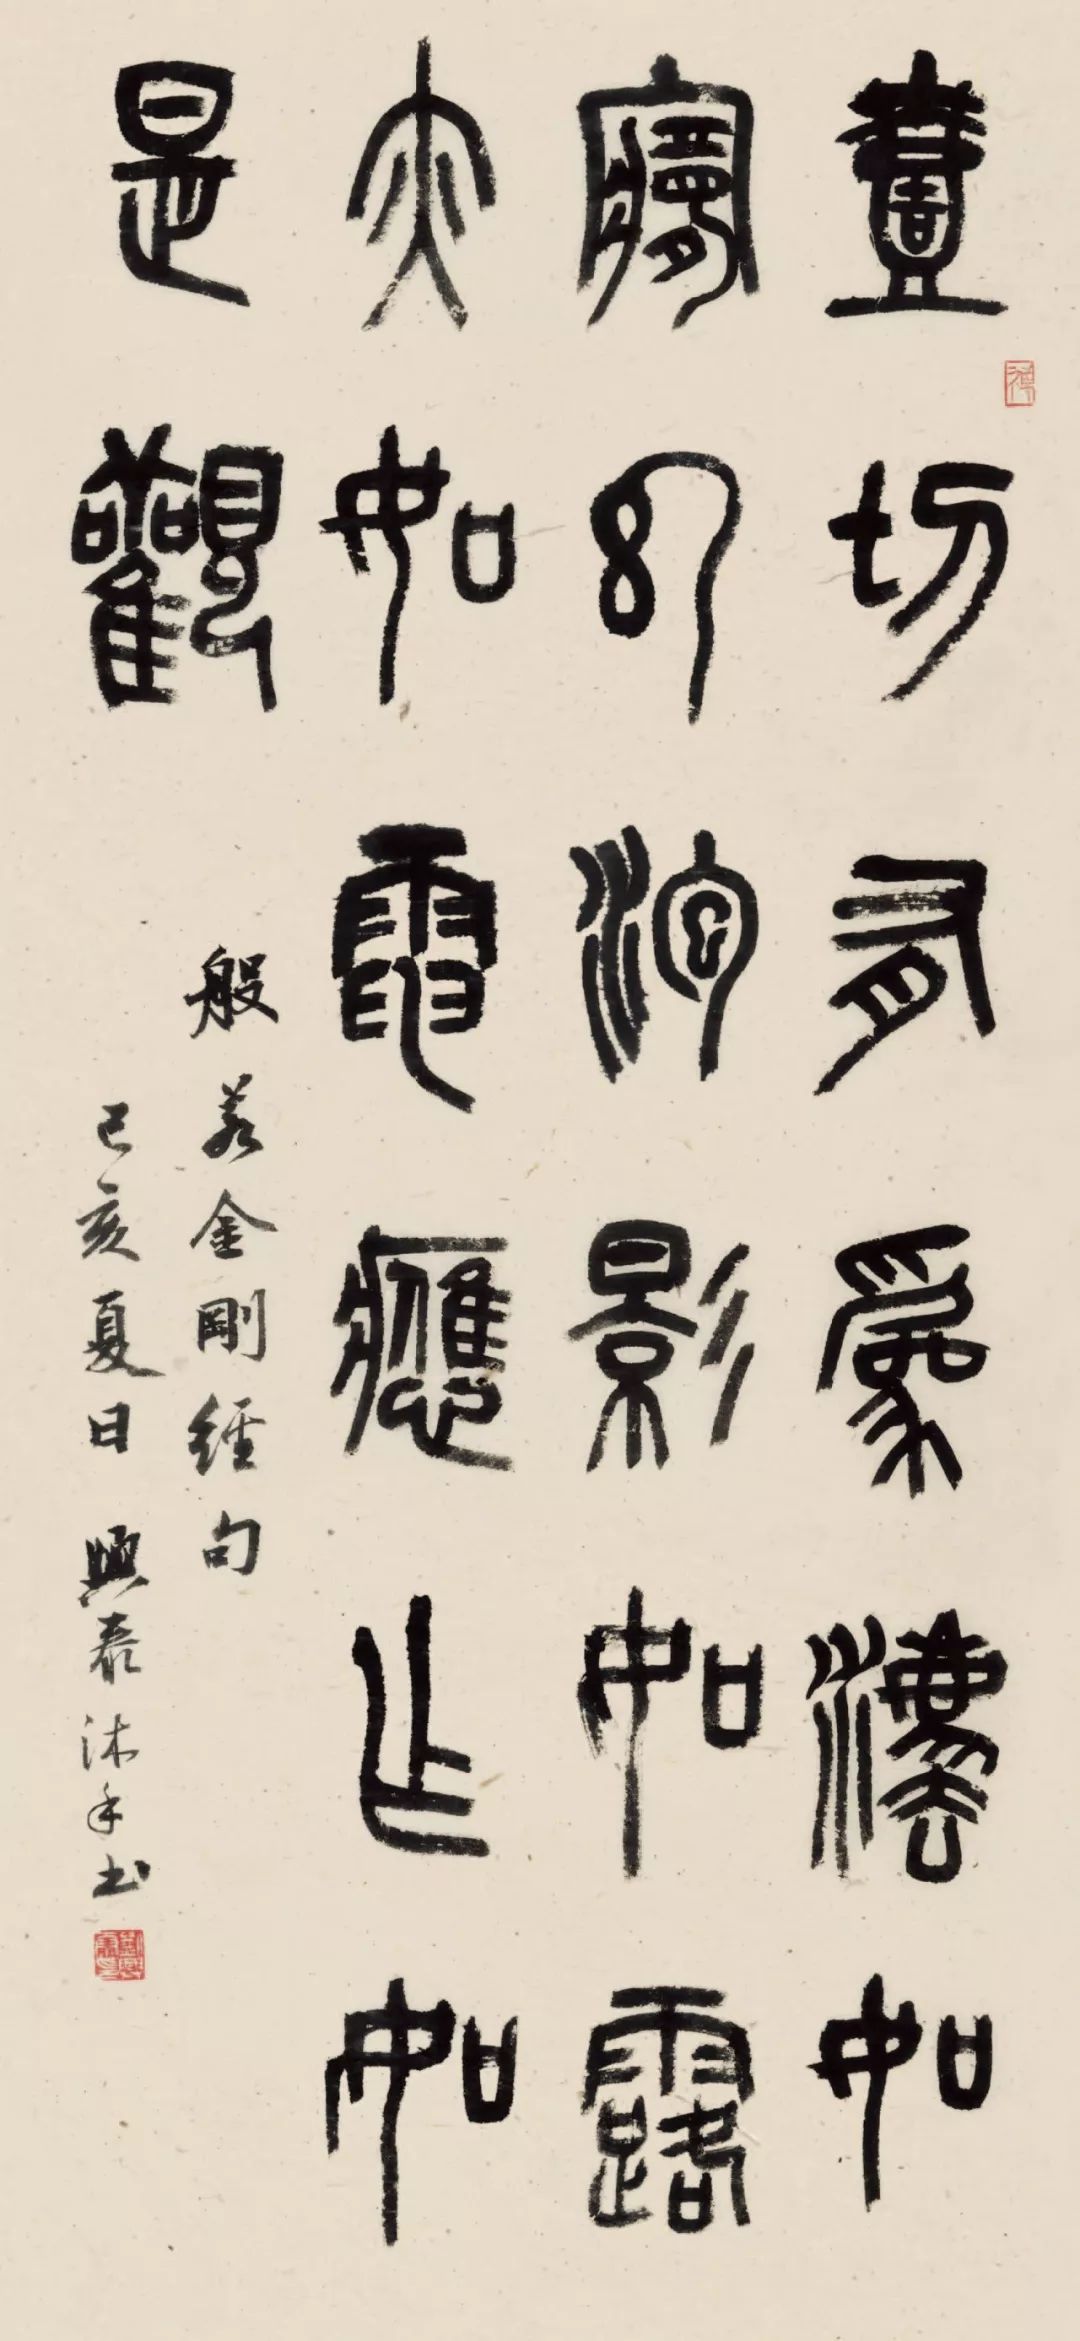 壹切有為灋如
㝱幻泡影如露
亦如電應乍如
是觀
般若金剛經句
己亥夏日 興泰沐手书